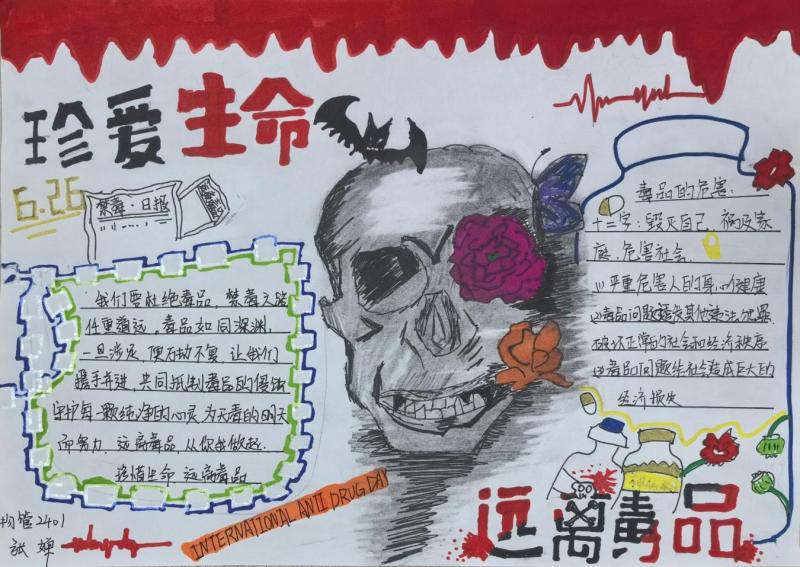 珍爱生命
6.26
禁毒·日报
我们要杜绝毒品，禁毒之路
任重道远，毒品如同深渊，
一旦涉足，便万劫不复，让我们
携手并进，共同抵制毒品的侵蚀
守护每一颗纯净的心灵为无毒的明天
而努力，远离毒品，从你我做起
珍惜生命 远离毒品
物管2401
张婵
INTERNATIONAL ANTI DRUG DAY
毒品的危害.
十二字：毁灭自己，祸及家
庭，危害社会.
(1)严重危害人的身心健康
(2)毒品问题诱发其他违法犯罪
破坏正常的社会和经济秩序
(3)毒品问题给社会造成巨大的
经济损失
远离毒品